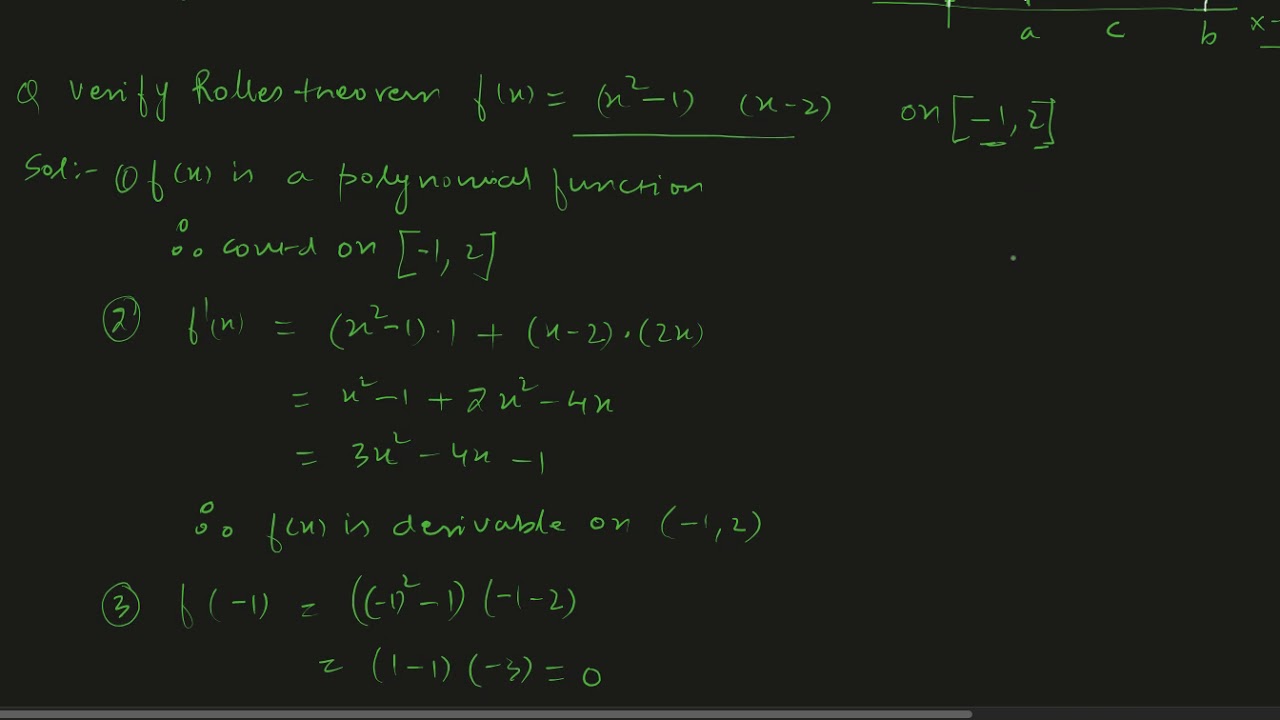 a c b x
Q verify Rolles theorem f(x) = (x²-1) (x-2) on [-1, 2]
Sol:- ① f(x) is a polynomial function
∴ on [-1, 2]
② f'(x) = (x²-1)·1 + (x-2)·(2x)
= x²-1 + 2x²-4x
= 3x²-4x-1
∴ f(x) is derivable on (-1,2)
③ f(-1) = ((-1)²-1) (-1-2)
= (1-1) (-3) = 0